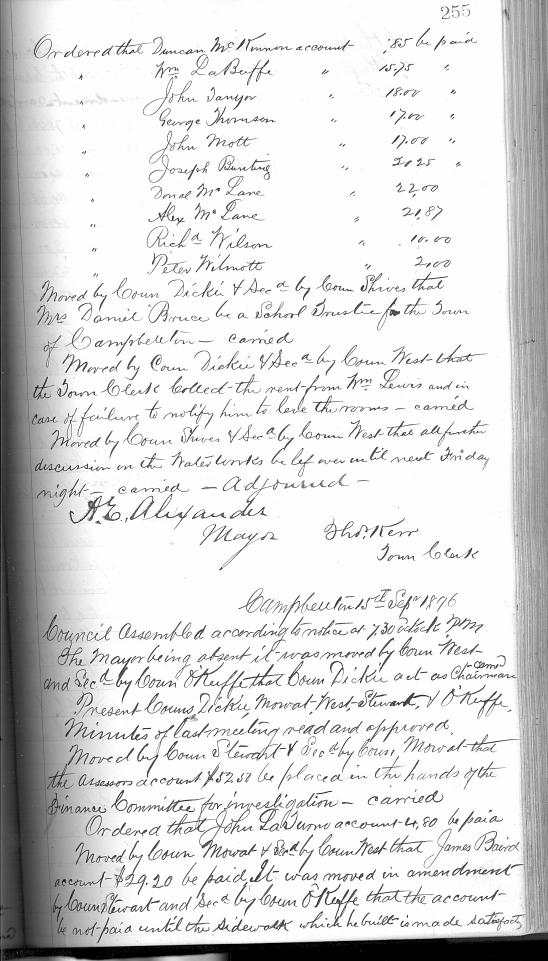 255
Ordered that Duncan McKinnon account .85 be paid
" Wm LaBuffe " 15.75 "
" John Tanyor " 18.00 "
" George Thomson " 17.00 "
" John Mott " 17.00 "
" Joseph Bunting " 21.25 "
" Donal McLane " 22.00
" Alex McLane " 21.87
" Richd Wilson " 10.00
" Peter Wilmott " 2.00
Moved by Coun Dickie & Secd by Coun Shives that
Mrs Daniel Bruce be a School Trustie for the Town
of Campbellton – carried
Moved by Coun Dickie & Secd by Coun West that
the Town Clerk Collect the rent from Wm Lewis and in
case of failure to notify him to leve the rooms – carried
Moved by Coun Shives & Secd by Coun West that all further
discussion on the Waterworks be lef over until next Friday
night – carried – Adjourned –
A.E. Alexander
Mayor Thos. Kerr
Town Clerk
Campbellton 15th Sepr 1896
Council Assembled according to notice at 7.30 oclock P.M
The Mayor being absent it was moved by Coun West
and Secd by Coun O'Keiffe that Coun Dickie act as Chairman carred
Present Couns Dickie, Mowat West Stewart, & O'Keiffe,
Minutes of last meeting read and approved.
Moved by Coun Stewart & Secd by Coun Mowat that
the Assessors account $52.50 be placed in the hands of the
Finance Committee for investigation – carried
Ordered that John account 4.80 be paid
Moved by Coun Mowat & Secd by Coun West that James Baird
account $29.20 be paid It was moved in amendment
by Coun Stewart and Secd by Coun O'Keiffe that the account
be not paid until the sidewalk which he built is made satisfacty